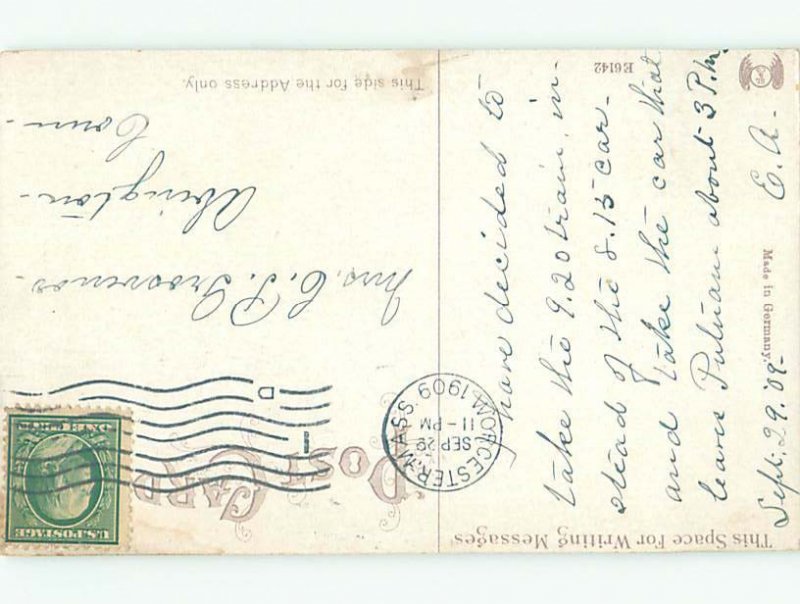 This Space For Writing Messages
POST CARD
This side for the Address only.
have decided to
take the 9.20 train in-
stead of the 8.15 car-
and take the car that
leaves Putnam about 3 P.M.
Sept. 29.'09- E.A.-
Made in Germany.
E6142
WORCESTER, MASS.
SEP 29
11-PM
1909
D
1
U.S. POSTAGE
ONE CENT
Mrs. C. P. Grosvenor-
Abington-
Conn-